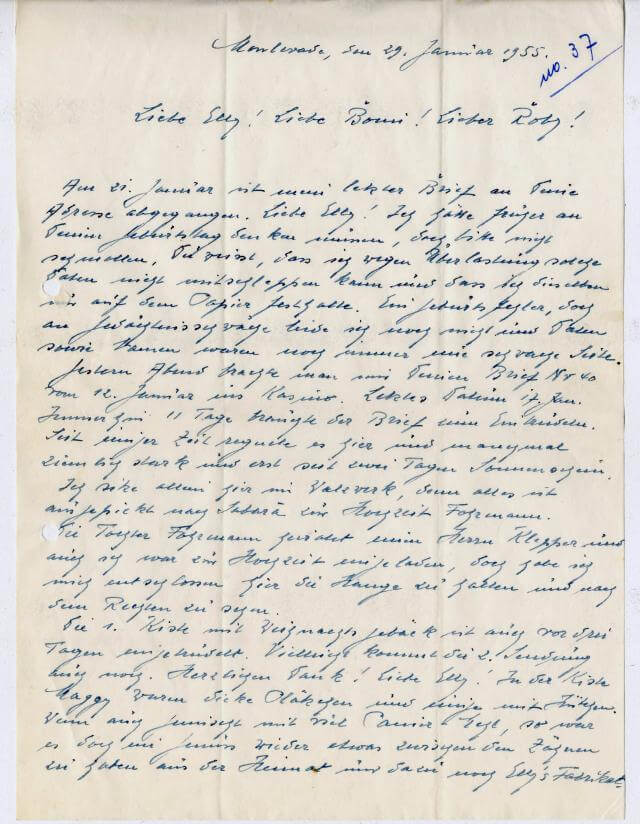 Monlevade, den 29. Januar 1955.
no. 37
Liebe Elly! Liebe Bomi! Lieber Roby!
Am 21. Januar ist mein letzter Brief an Deine
Adresse abgegangen. Liebe Elly! Ich hätte früher an
Deinen Geburtstag denken müssen, doch bitte nicht
schmollen, Du weisst, dass ich wegen Überlastung solche
Daten nicht mitschleppen kann und dass ich dieselben
nur auf dem Papier festhalte. Ein Geburtsfehler, doch
an Gedächtnisschwäche leide ich noch nicht und Daten
sowie Namen waren noch immer meine schwache Seite.
Gestern Abend brachte man mir Deinen Brief Nr 40
vom 12. Januar ins Kasino. Letztes Datum 17. Jan.
Immerhin 11 Tage brauchte der Brief zum Eintrudeln.
Seit einiger Zeit regnete es hier und manchmal
ziemlich stark und erst seit zwei Tagen Sonnenschein.
Ich sitze allein hier im Walzwerk, denn alles ist
ausgepickt nach Sabará zur Hochzeit Fohrmann.
Die Tochter Fohrmann heiratet einen Herrn Klepper und
auch ich war zur Hochzeit eingeladen, doch habe ich
mich entschlossen hier die Stange zu halten und nach
dem Rechten zu sehen.
Die 1. Kiste mit Weihnachtsgebäck ist auch vor drei
Tagen eingetrudelt. Vielleicht kommt die 2. Sendung
auch noch. Herzlichen Dank! Liebe Elly! In der Kiste
Maggy waren dicke und einige mit
Wenn auch gemischt mit viel Papier, so war
es doch ein Genuss wieder etwas zwischen den Zähnen
zu haben aus der Heimat und dazu noch Elly's Fabrikat.